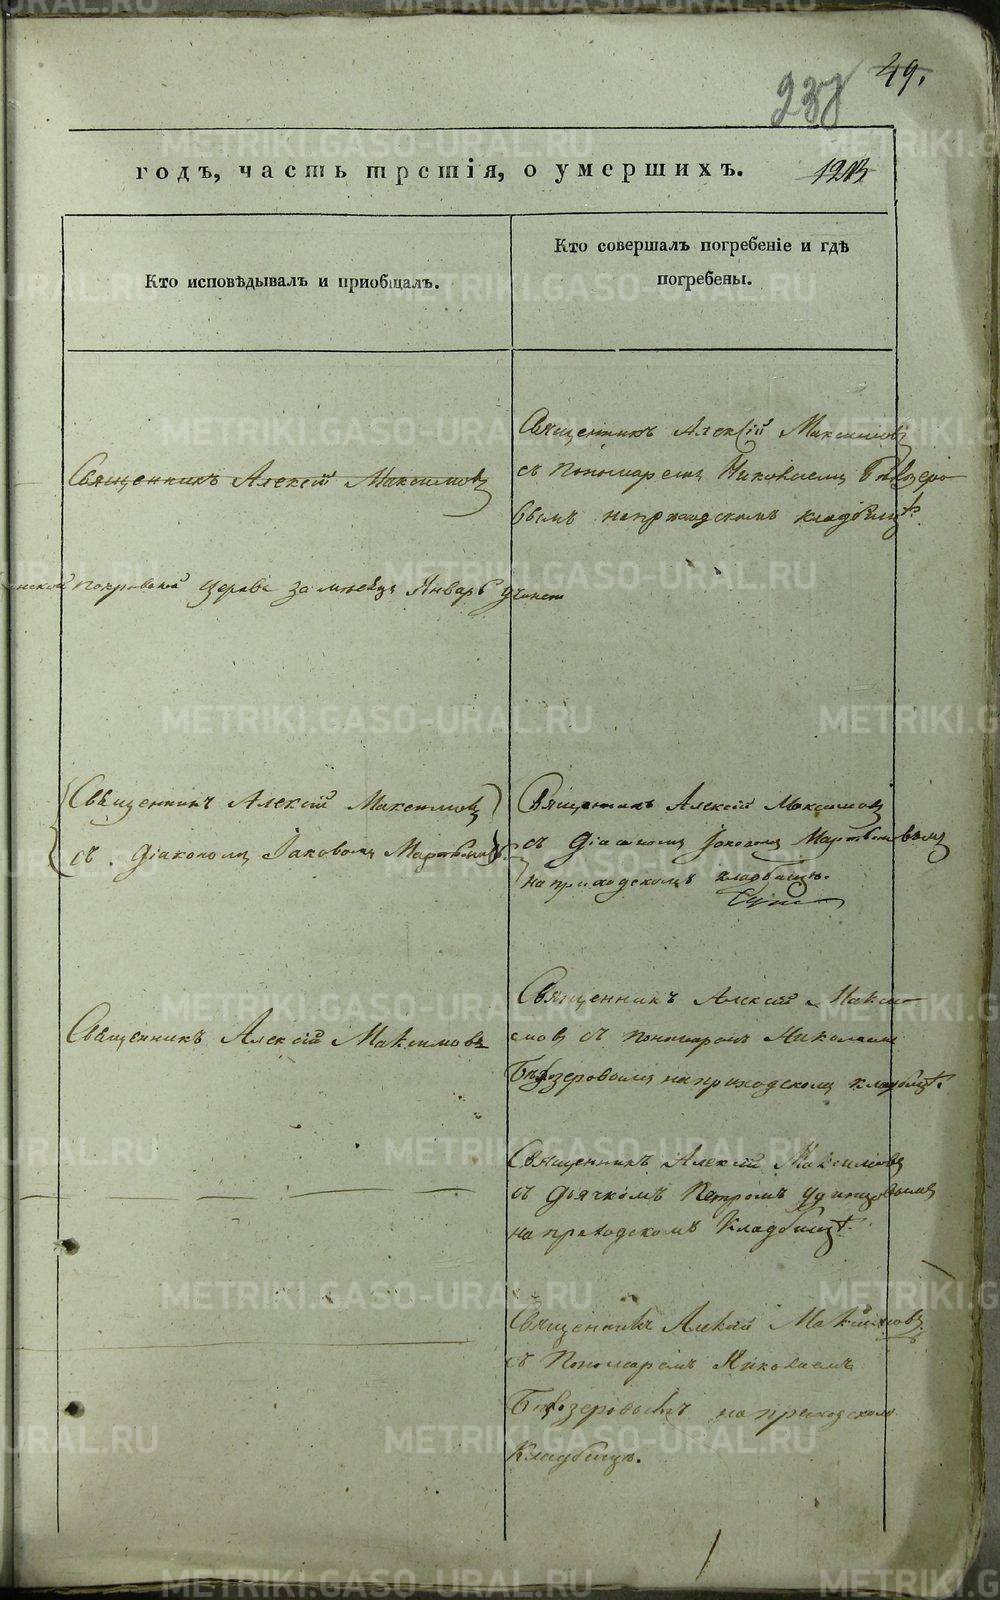 49.
238
годъ, часть третія, о умершихъ.
1213
Кто исповѣдывалъ и пріобщалъ.
Кто совершалъ погребеніе и гдѣ
погребены.
Священникъ Алексій Максимовъ
Священникъ Алексій Максимовъ
съ Пономаремъ Николаемъ Бѣлозеро-
вымъ на приходскомъ кладбищѣ.
Покровской церкви за мѣсяцъ Январь
Священникъ Алексій Максимовъ
съ Діакономъ Іаковомъ
Священникъ Алексій Максимовъ
съ Діакономъ Іаковомъ
на приходскомъ кладбищѣ.
Священникъ Алексій Максимовъ
Священникъ Алексій Макси-
мовъ съ Пономаремъ Николаемъ
Бѣлозеровымъ на приходскомъ кладбищѣ.
Священникъ Алексій Максимовъ
съ Дьячкомъ Петромъ Удинцовымъ
на приходскомъ Кладбищѣ.
Священникъ Алексій Максимовъ
съ Пономаремъ Николаемъ
Бѣлозеровымъ на приходскомъ
Кладбищѣ.
METRIKI.GASO-URAL.RU